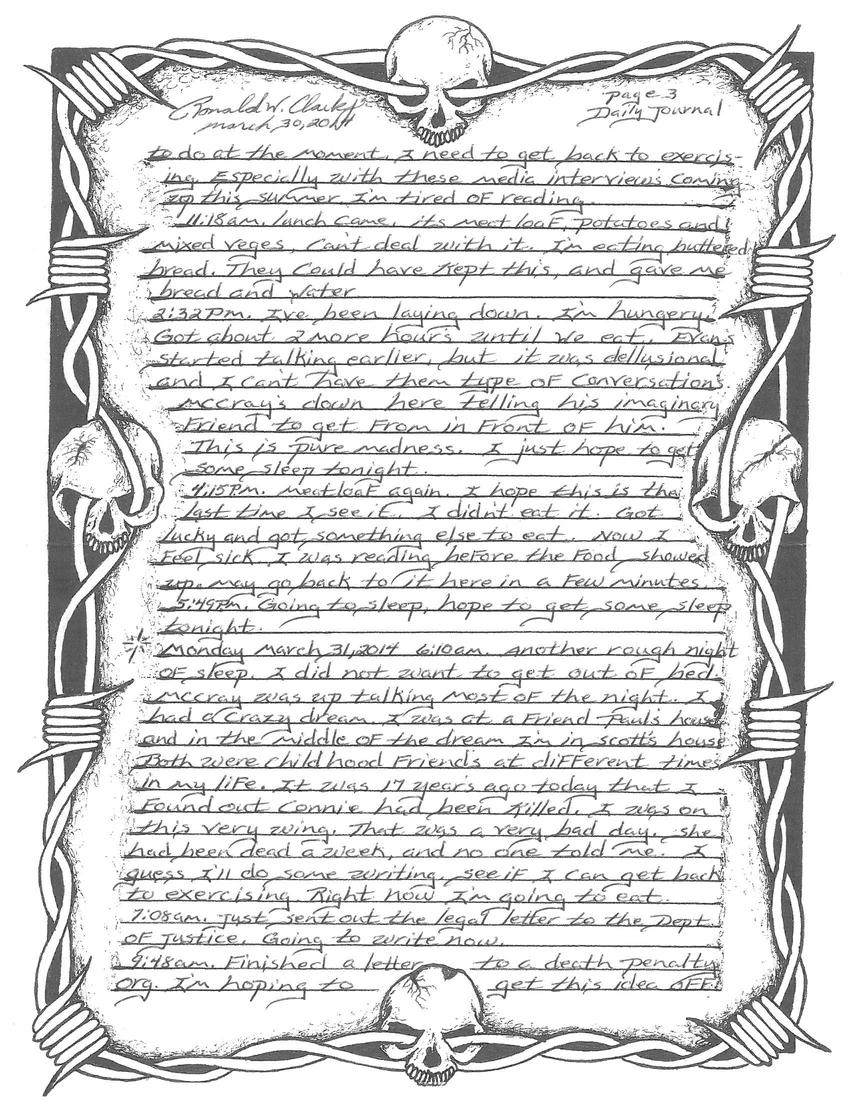 Ronald W. Clark Jr
March, 30, 2014
page 3
Daily Journal
to do at the moment. I need to get back to exercis-
ing. Especially with these media interviews coming
up this summer. I'm tired of reading.
11:18am. lunch came, its meat loaf, potatoes and
mixed veges, Can't deal with it. I'm eating buttered
bread. They could have kept this, and gave me
bread and water
2:32pm. I've been laying down. I'm hungery.
Got about 2 more hours until we eat. Evans
started talking earlier, but it was dellusional
and I can't have them type of conversations
McCray's down here telling his imaginary
friend to get from in front of him.
This is pure madness. I just hope to get
some sleep tonight.
4:15pm. Meatloaf again. I hope this is the
last time I see it. I didn't eat it. Got
lucky and got something else to eat. Now I
feel sick. I was reading before the food showed
up. may go back to it here in a few minutes.
5:49pm. Going to sleep, hope to get some sleep
tonight.
Monday March 31, 2014 6:10am. Another rough night
of sleep. I did not want to get out of bed.
McCray was up talking most of the night. I
had a crazy dream. I was at a friend Paul's house
and in the middle of the dream I'm in Scott's house
Both were childhood friends at different times
in my life. It was 17 years ago today that I
found out Connie had been killed. I was on
this very wing. That was a very bad day. she
had been dead a week, and no one told me. I
guess I'll do some writing. see if I can get back
to exercising. Right now I'm going to eat.
7:08am. Just sent out the legal letter to the Dept.
of Justice. Going to write now.
9:48am. Finished a letter to a death penalty
org. I'm hoping to get this idea off